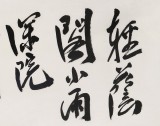 輕蔭
閣小雨
深院